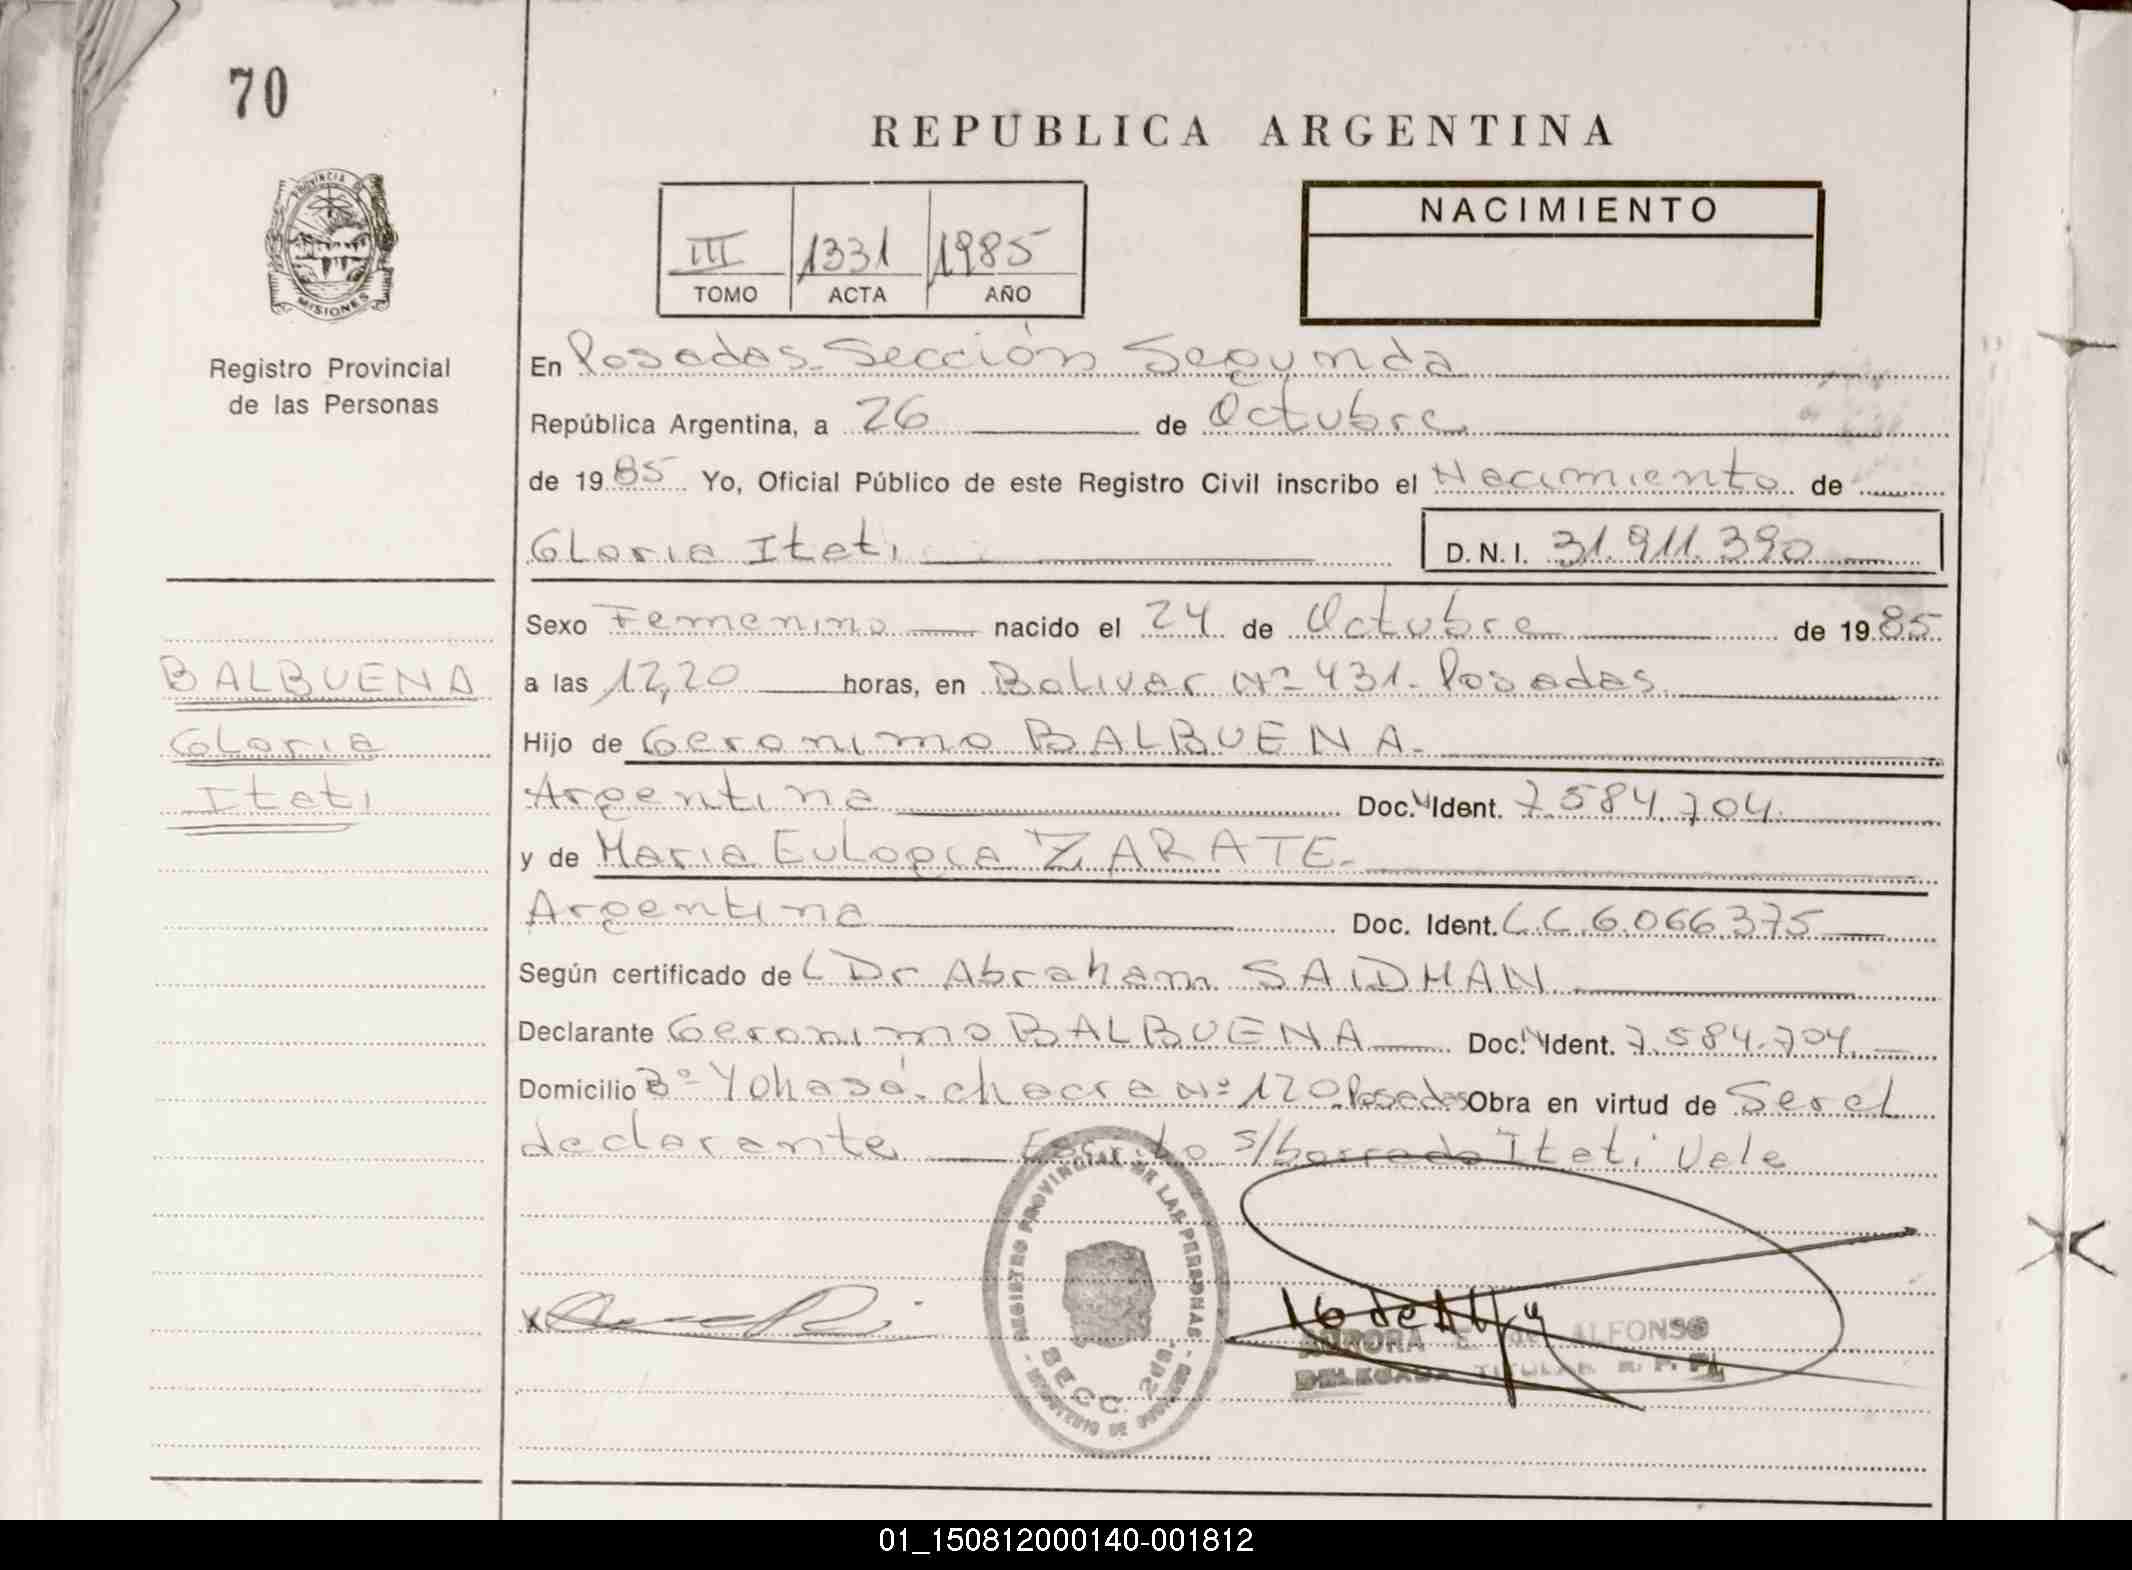 70
REPUBLICA ARGENTINA
PROVINCIA DE
MISIONES
Registro Provincial
de las Personas
III 1331 1985
TOMO ACTA AÑO
NACIMIENTO
En Posadas-Sección Segunda
República Argentina, a 26 de Octubre
de 1985 Yo, Oficial Público de este Registro Civil inscribo el Nacimiento de
Gloria Itati
D.N.I. 31.911.390
Sexo Femenino nacido el 24 de Octubre de 1985
a las 12,20 horas, en Bolivar Nº 431- Posadas
Hijo de Geronimo BALBUENA-
Argentina Doc. Ident. 7.584.704.
y de Maria Eulogia ZARATE-
Argentina Doc. Ident. L.C.6.066.375
Según certificado de L Dr Abraham SAIDMAN
Declarante Geronimo BALBUENA Doc. Ident. 7.584.704.
Domicilio Bº Yohasá-chacra Nº 120 Posadas Obra en virtud de Ser el
declarante Escrito s/borrado Itati Vale
BALBUENA
Gloria
Itati
REGISTRO PROVINCIAL DE LAS PERSONAS
SECC. 2da.
MINISTERIO DE GOBIERNO
AURORA E. de ALFONSO
DELEGADA TITULAR R. P.
01_150812000140-001812